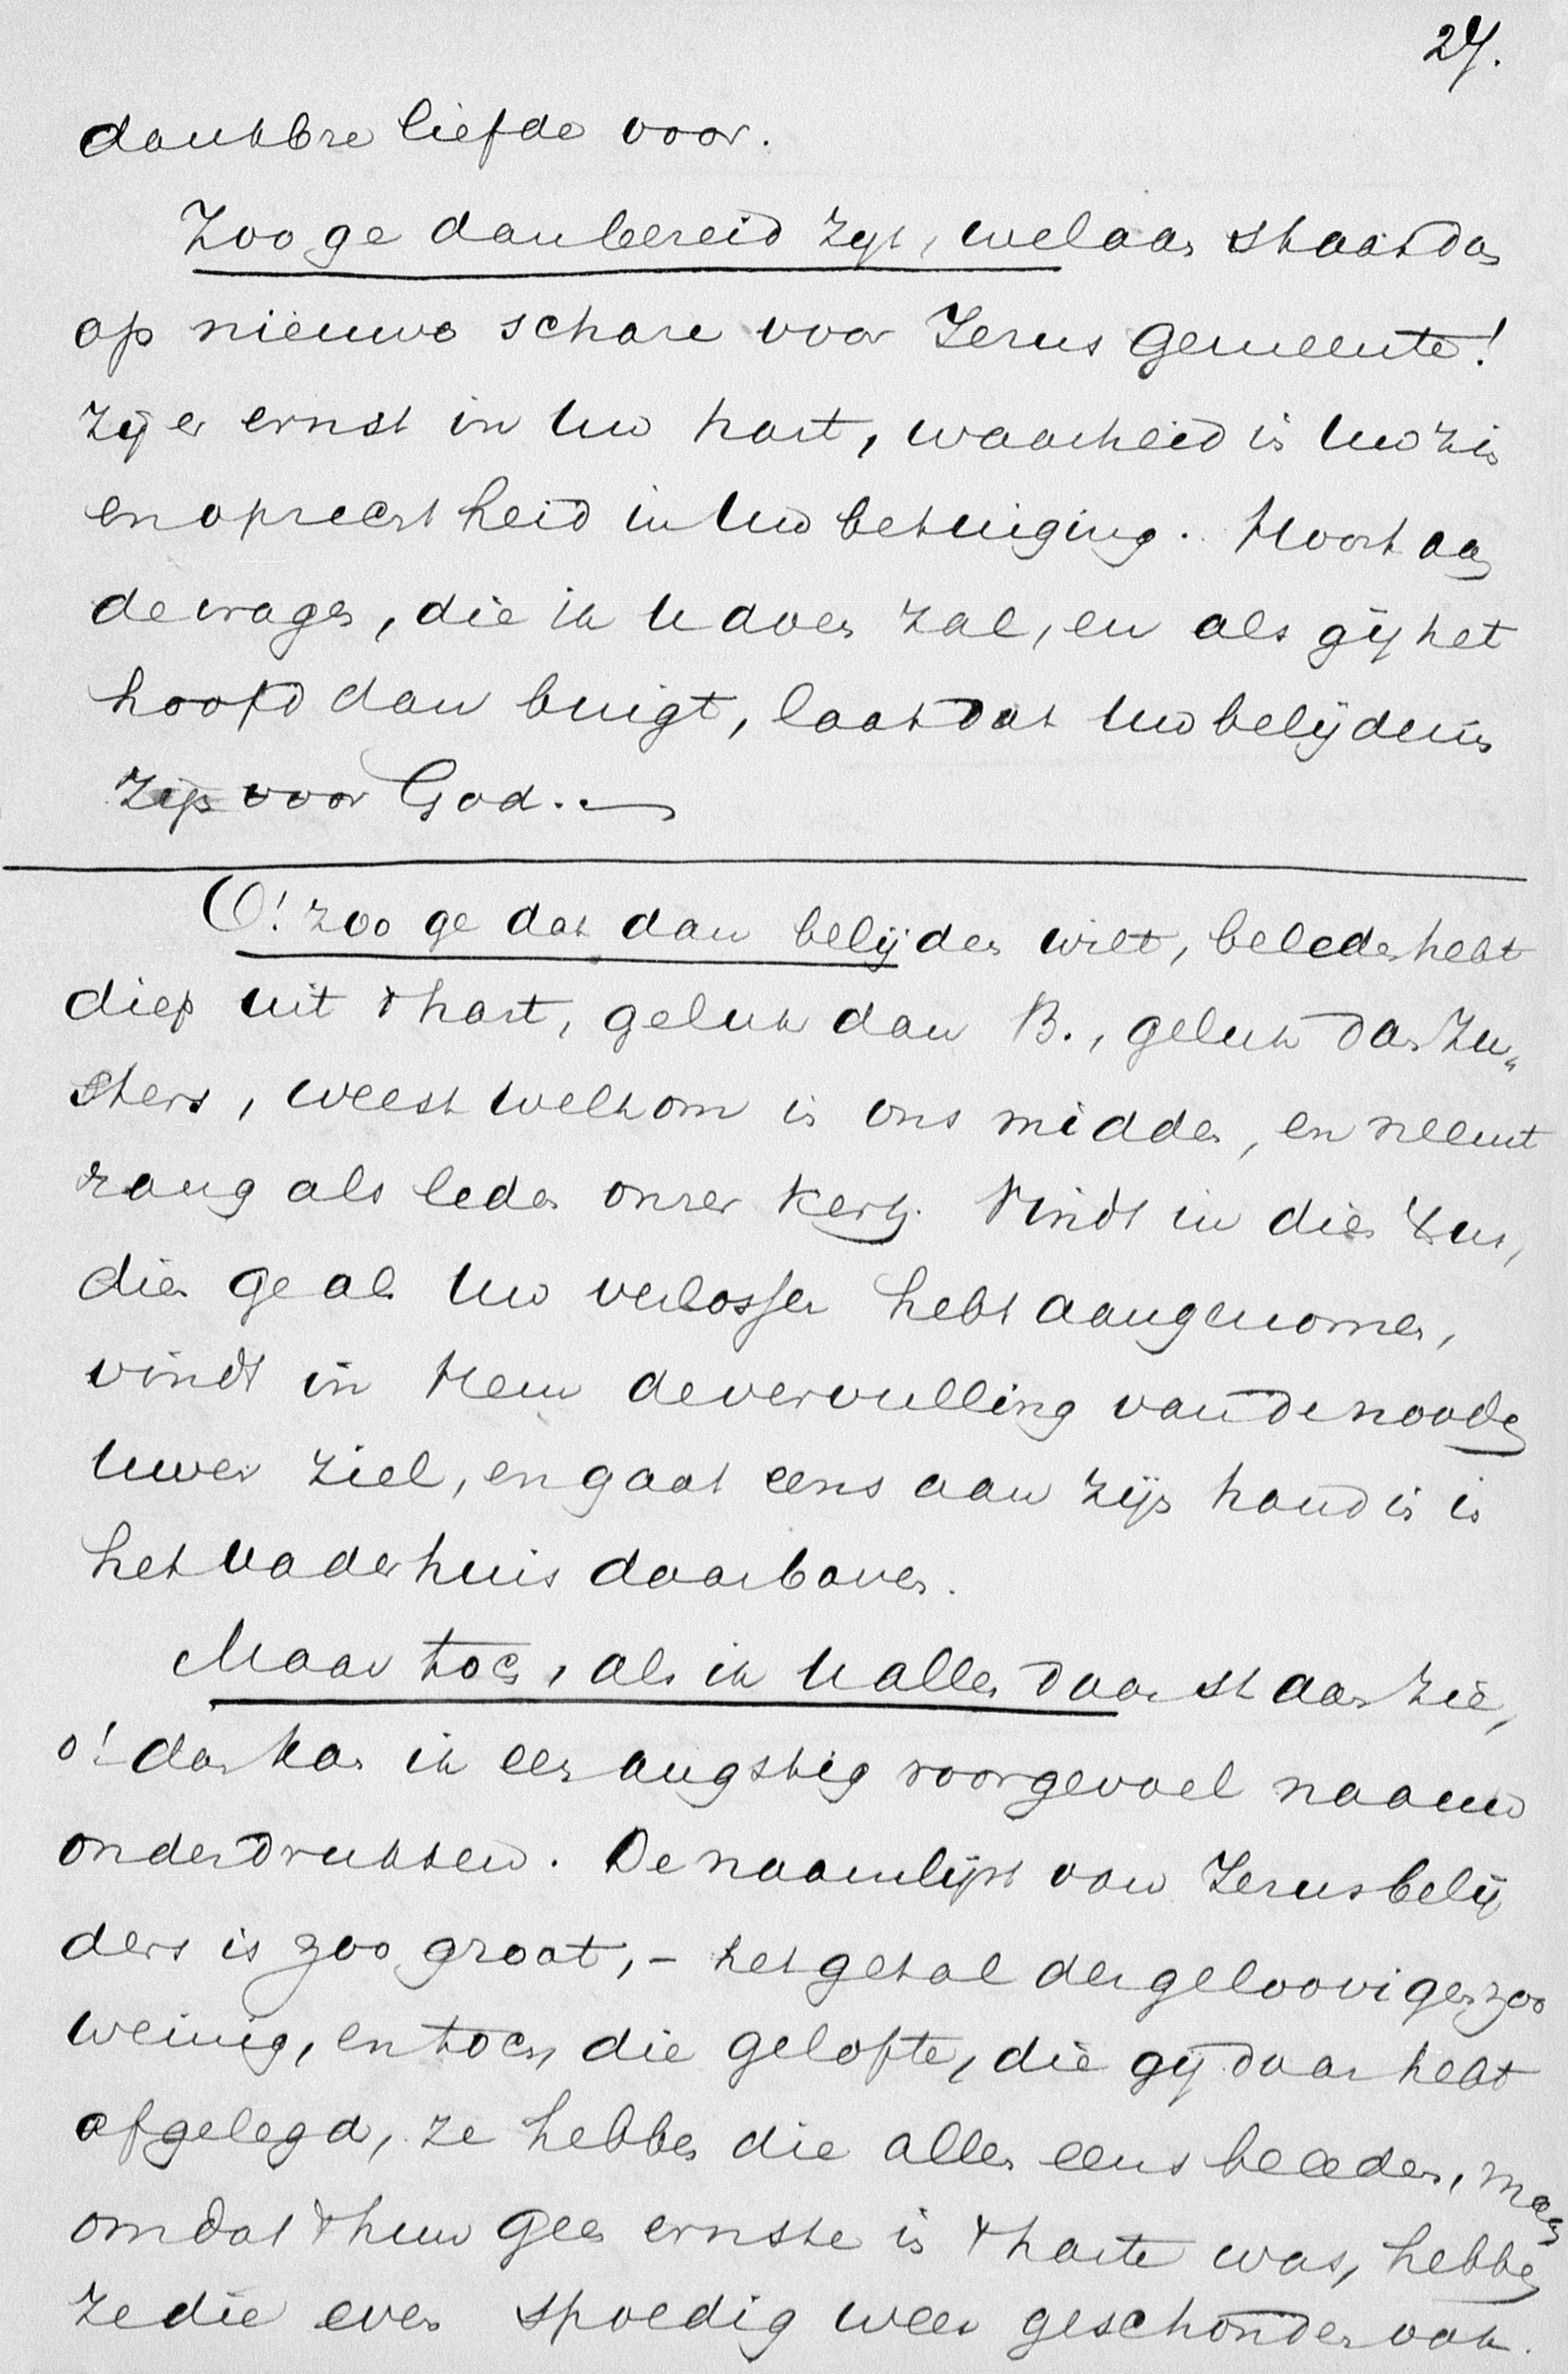 27.
dankbre liefde voor.
Zoo ge dan bereid zijt, welaan staat dan
op nieuwe schare voor Jezus gemeente!
Zij er ernst in Uw hart, waarheid in Uw zin
en oprechtheid in Uw betuiging. Hoort aan
de vragen, die ik U doen zal, en als gij het
hoofd dan buigt, laat dat Uw belijdenis
zijn voor God. —
O! zoo ge dat dan belijden wilt, beleden hebt
diep uit 't hart, geluk dan B., geluk dan Zu„
sters, weest welkom in ons midden, en neemt
rang als leden onzer kerk. Vindt in dien Zus,
dien ge als Uw verlosser hebt aangenomen,
vindt in Hem de vervulling van de nooden
Uwer ziel, en gaat eens aan zijn hand in in
het vaderhuis daarboven.
Maar toch, als ik U allen daar staan zie,
o! dan kan ik een angstig voorgevoel naauw
onderdrukken. De naamlijst van Jezus belij
ders is zoo groot, - het getal der geloovigen zoo
weinig, en toch, die gelofte, die gij daar hebt
afgelegd, ze hebben die allen eens beleden, maar
omdat 't hun geen ernste in 't harte was, hebben
ze die even spoedig weer geschonden ook.